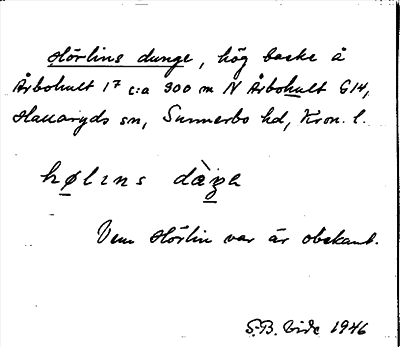 Hörlins dunge, hög backe å
Årbohult 1⁷ c:a 300 m N Årbohult G14,
Hallaryds sn, Sunnerbo hd, Kron. l.
hølɪns
Vem Hörlin var är obekant.
S.B. Vide 1946